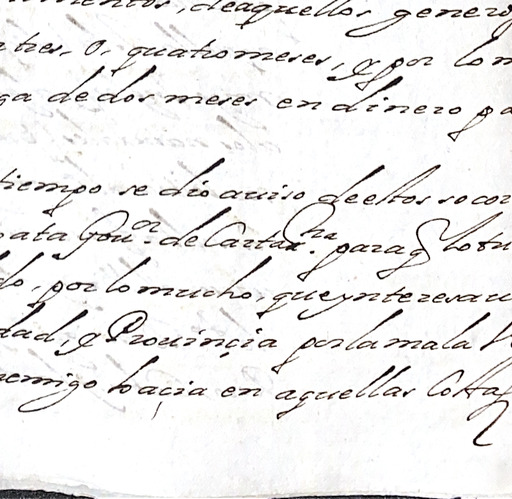 mentos, deaquellos genero
tres, o, quatro meses, y por lo m
ga de dos meses en dinero pa
tiempo se dio auiso deestos socor
ata Gouor. de Cartaxna. para q lo tu
do, por lo mucho, que ynteresau
dad, y Prouinçia por la mala V
nemigo haçia en aquellas Costas